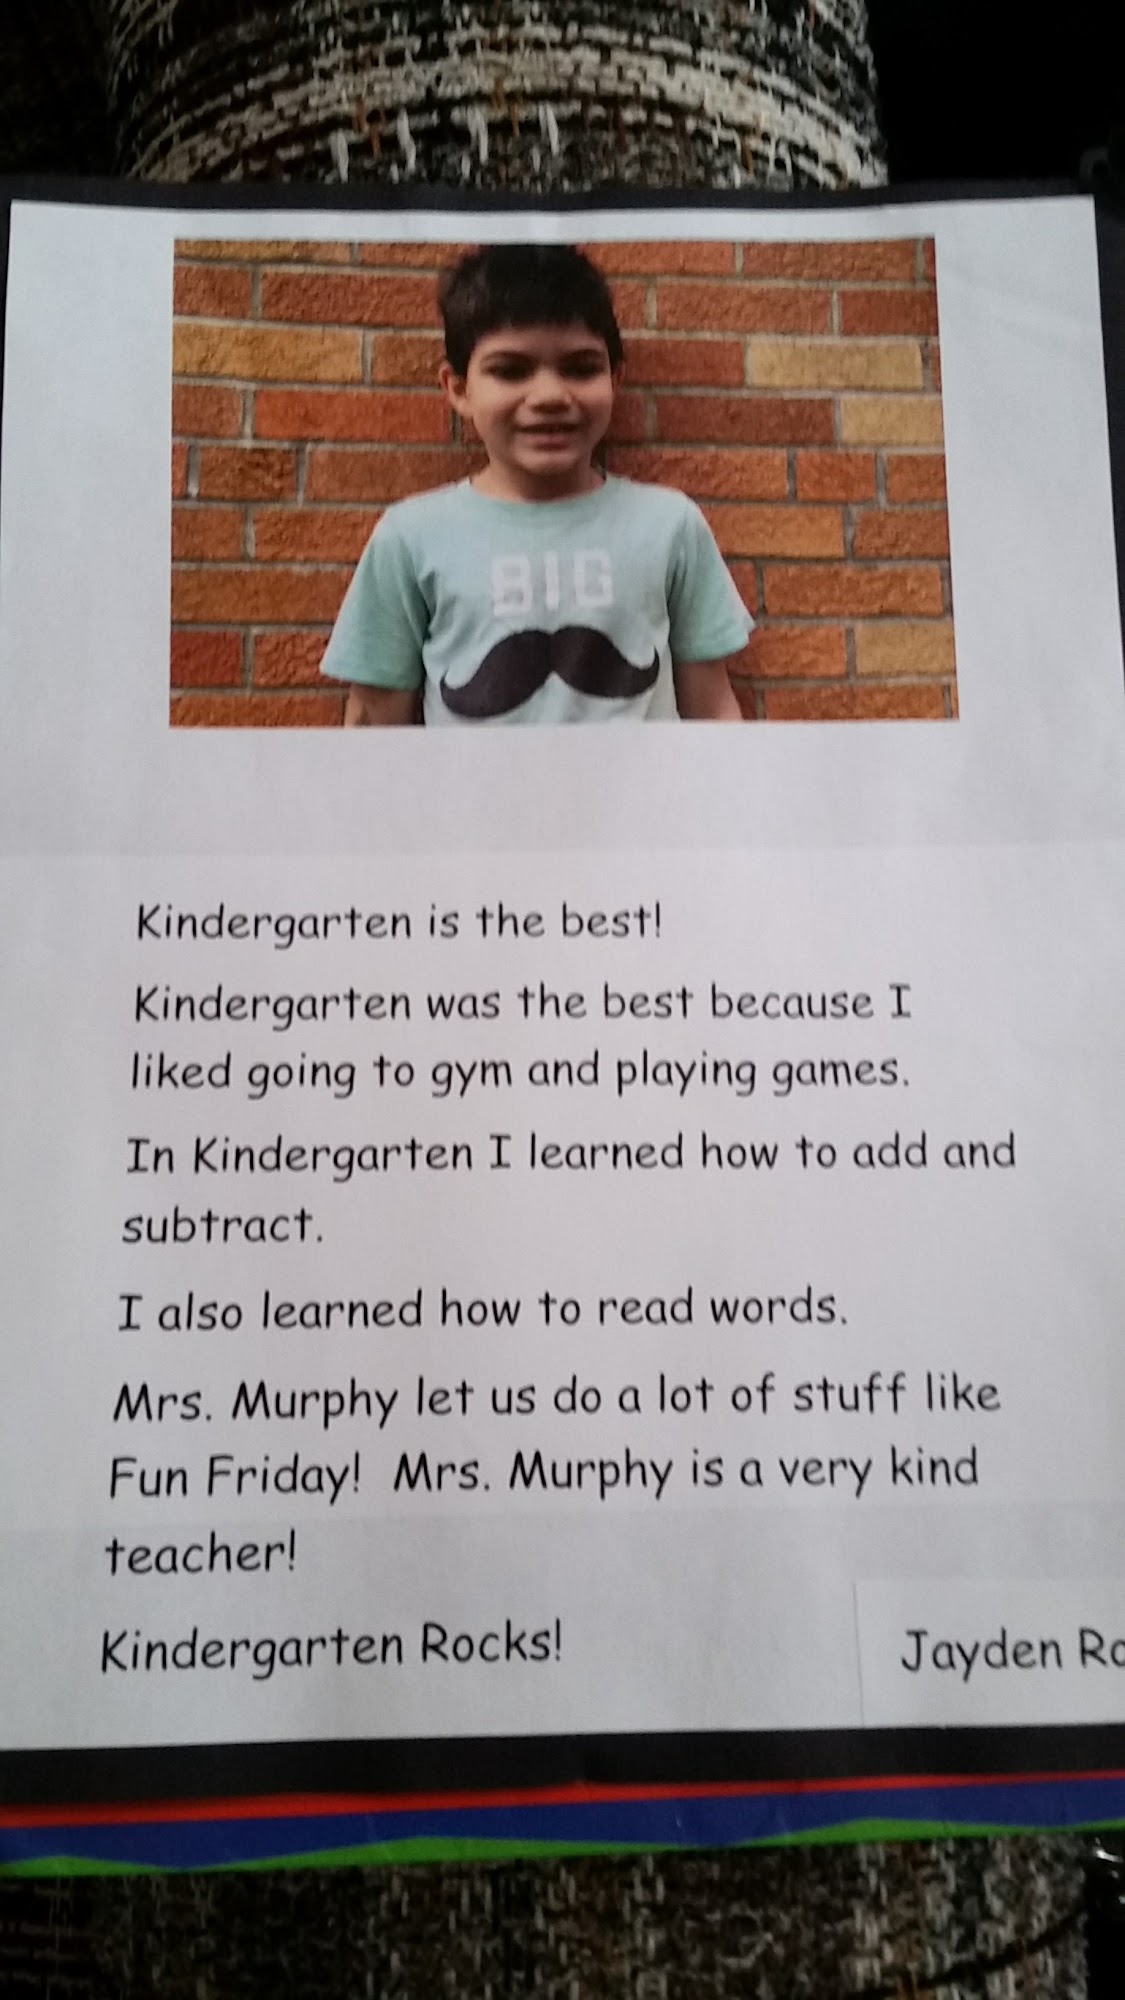 BIG
Kindergarten is the best!
Kindergarten was the best because I
liked going to gym and playing games.
In Kindergarten I learned how to add and
subtract.
I also learned how to read words.
Mrs. Murphy let us do a lot of stuff like
Fun Friday!  Mrs. Murphy is a very kind
teacher!
Kindergarten Rocks!
Jayden